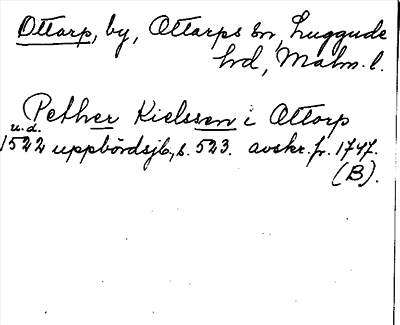 Ottarp, by, Ottarps sn, Luggude
hd, Malm. l.
Pether Kielssen i Ottarp
u.d.
1522 uppbördsjb, s. 523. avskr. fr. 1747.
(B).